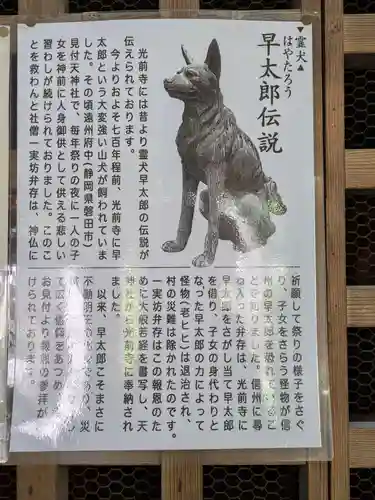 ▼霊犬▲
はやたろう
早太郎伝説
光前寺には昔より霊犬早太郎の伝説が
伝えられております。
今よりおよそ七百年程前、光前寺に早
太郎という大変強い山犬が飼われていま
した。その頃遠州府中(静岡県磐田市)
見付天神社で、毎年祭りの夜に一人の子
女を神前に人身御供として供える悲しい
習わしが続けられておりました。このこ
とを救わんと社僧一実坊弁存は、神仏に
祈願して祭りの様子をさぐ
り、子女をさらう怪物が信
州の早太郎を恐れているこ
とを知りました。信州に尋
ね入った弁存は、光前寺に
早太郎をさがし当て早太郎
を借り、子女の身代わりと
なった早太郎の力によって
怪物(老ヒヒ)は退治され、
村の災難は除かれたのです。
弁存は この報恩のた
めに大般若経を書写し、天
神社から光前寺に奉納され
ました。
以来、早太郎こそまさに
不動明王の であり、災
て広く をあつめ
お見付より の参拝が
けられております。